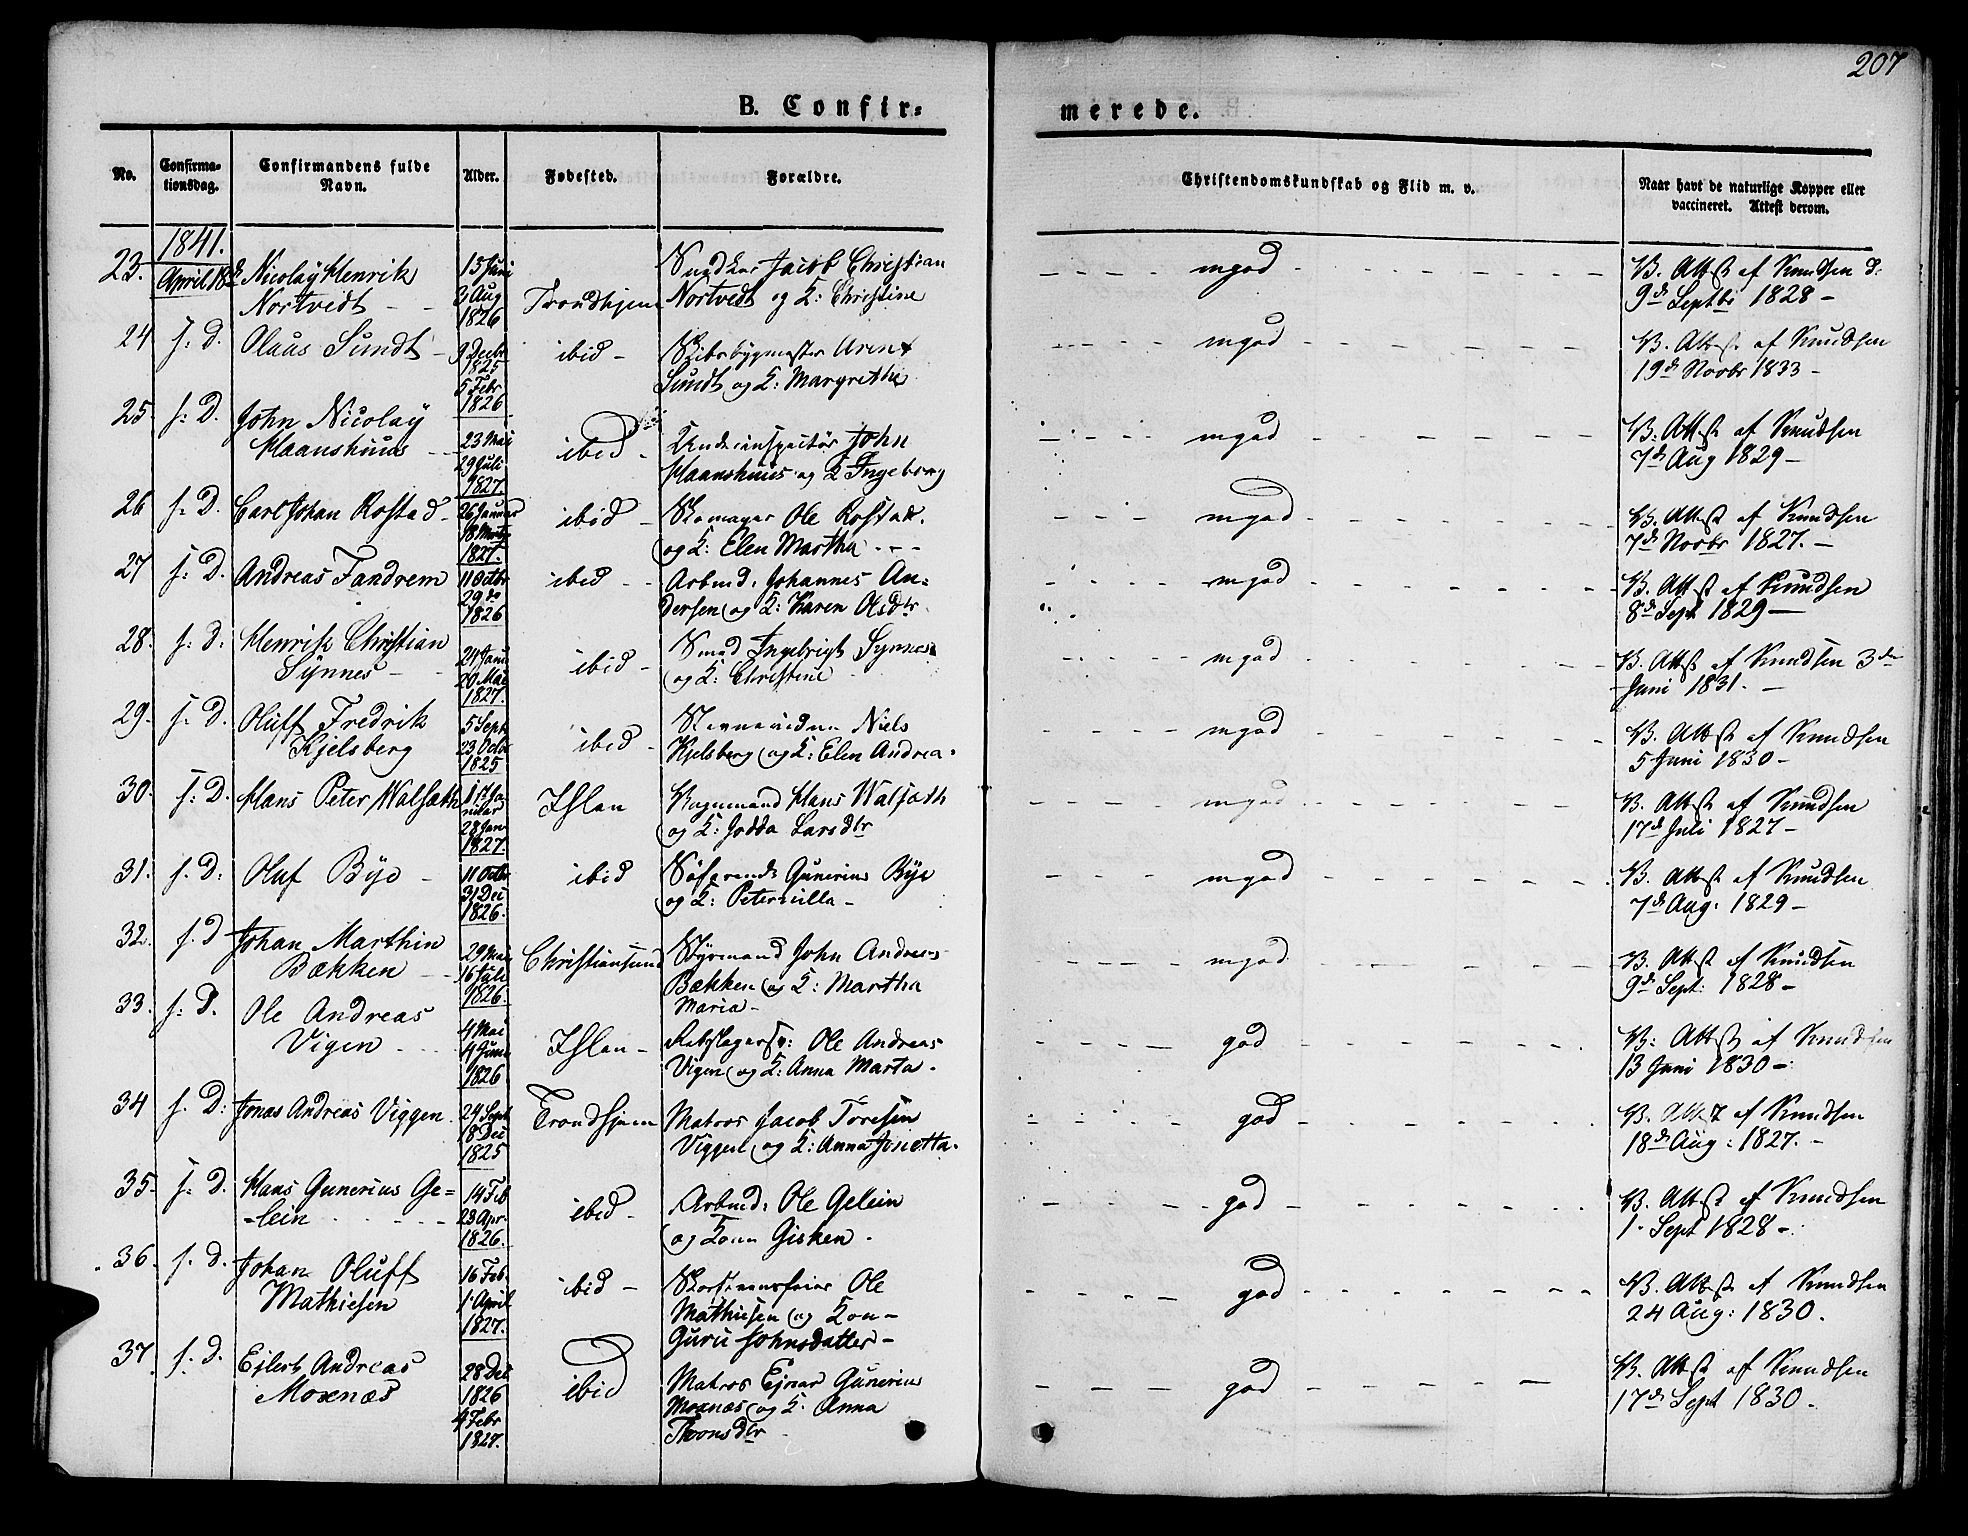 207
B. Confir=
merede.
No.
Confirma-
tionsdag.
Confirmandens fulde
Navn.
Alder.
Fødested.
Forældre.
Christendomskundskab og Flid m. v.
Naar havt de naturlige Kopper eller
vaccineret. Attest derom.
1841.
23. April 18de Nicolay Henrik
Nortvedt
13 Juni
3 Aug
1826
Trondhjem
Jacob Christian
Nortvedt og K: Christine
mgod
V. Attst af Knudsen d.
9de Septbr 1828 -
24 s. D. Olaus Sundt
9 Decbr
1825
5 Febr
1826
ibid -
Skibsbygmester Arent
Sundt og K: Margrethe
mgod
V. Attst af Knudsen
19de Novbr 1833 -
25. s: D. John Nicolay
Haanshuus
23 Mai
29 Juli
1827.
ibid -
John
Haanshuus og K Ingeborg
mgod
V. Attst af Knudsen
7de Aug 1829 -
26 s: D. Carl Johan Rostad
26 Januar
18 Martz
1827.
ibid -
Skomager Ole Rostad.
og K: Elen Martha
mgod
V. Attst af Knudsen
7de Novbr 1827. -
27 s: D. Andreas Fandrem
11 Octbr
29 do
1826
ibid - -
Arbmd: Johannes An=
dersen og K: Karen Olsdtr.
mgod
V. Attst af Knudsen
8de Sept 1829 -
28. s: D: Henrik Christian
Synnes -
21 Janu
20 Mai
1827.
ibid -
Smed Ingebrigt Synnes
og K: Christine
mgod
V. Attst af Knudsen 3de
Juni 1831. -
29. s: D. Oluff Fredrik
Kjelsberg
5 Sept
23 Octbr
1825
ibid -
Niels
Kjelsberg og K: Elen Andrea.
mgod
V. Attst af Knudsen
5 Juni 1830 -
30. s: D. Hans Peter Walsøth
1ste Ja
nuar
28 Jan
1827.
Ihlen
Vognmand Hans Walsøth
og K: Jodda Larsdtr
mgod
V. Attst af Knudsen
17de Juli 1827 -
31. s. D: Oluf Bye -
11 Octbr
31 Dec
1826.
ibid
Søfarende Gunerius Bye
og K: Peternilla -
mgod
V. Attst af Knudsen
7de Aug: 1829 -
32. s. D Johan Marthin
Bækken
29 Mai
16 Juli
1826.
Christiansund
Styrmand John Andreas
Bækken og K: Martha
Maria -
mgod
V. Attst af Knudsen
9de Sept: 1828 -
33. s: D. Ole Andreas
Vigen
4 Mai
4 Juni
1826
Ihlen -
Rebslagersv: Ole Andreas
Vigen og K: Anna Marta.
god
V: Attst af Knudsen
13 Juni 1830 -
34 s. D: Jonas Andreas Viggen
24 Sept
18 Dec
1825
Trondhjem
Matros Jacob Toresen
Viggen og K: Anna Jonetta.
god
V. Attst af Knudsen
18de Aug: 1827. -
35. s: D. Hans Gunerius Ge=
=lein
14 Feb
23 Apr.
1826.
ibid -
Arbmd: Ole Gelein
og Kone Gisken.
god
V. Attst af Knudsen
1. Sept 1828 -
36. s. D. Johan Oluff
Mathiesen
16 Feb.
1 April
1827.
ibid -
Skorstensfeier Ole
Mathiesen og Kon-
Guru Johnsdatter -
god
V. Attst af Knudsen
24 Aug: 1830.
37. s. D. Ejlert Andreas
Moxnæs
28 Dec
1826
4 Febr
1827.
ibid
Matros Ejnar Gunerius
Moxnæs og K. Anna
Thonsdtr
god
V. Attst af Knudsen
17de Sept 1830.